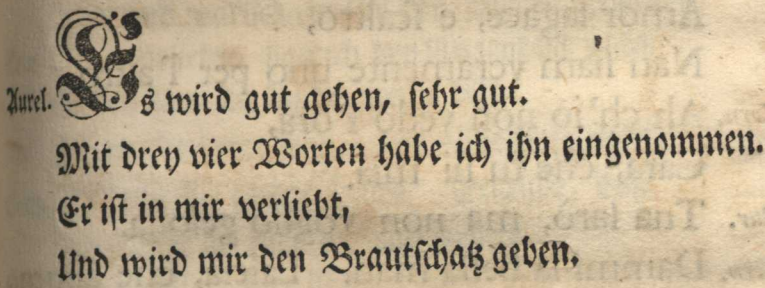 Aurel. Es wird gut gehen, sehr gut.
Mit drey vier Worten habe ich ihn eingenommen.
Er ist in mir verliebt,
Und wird mir den Brautschatz geben.